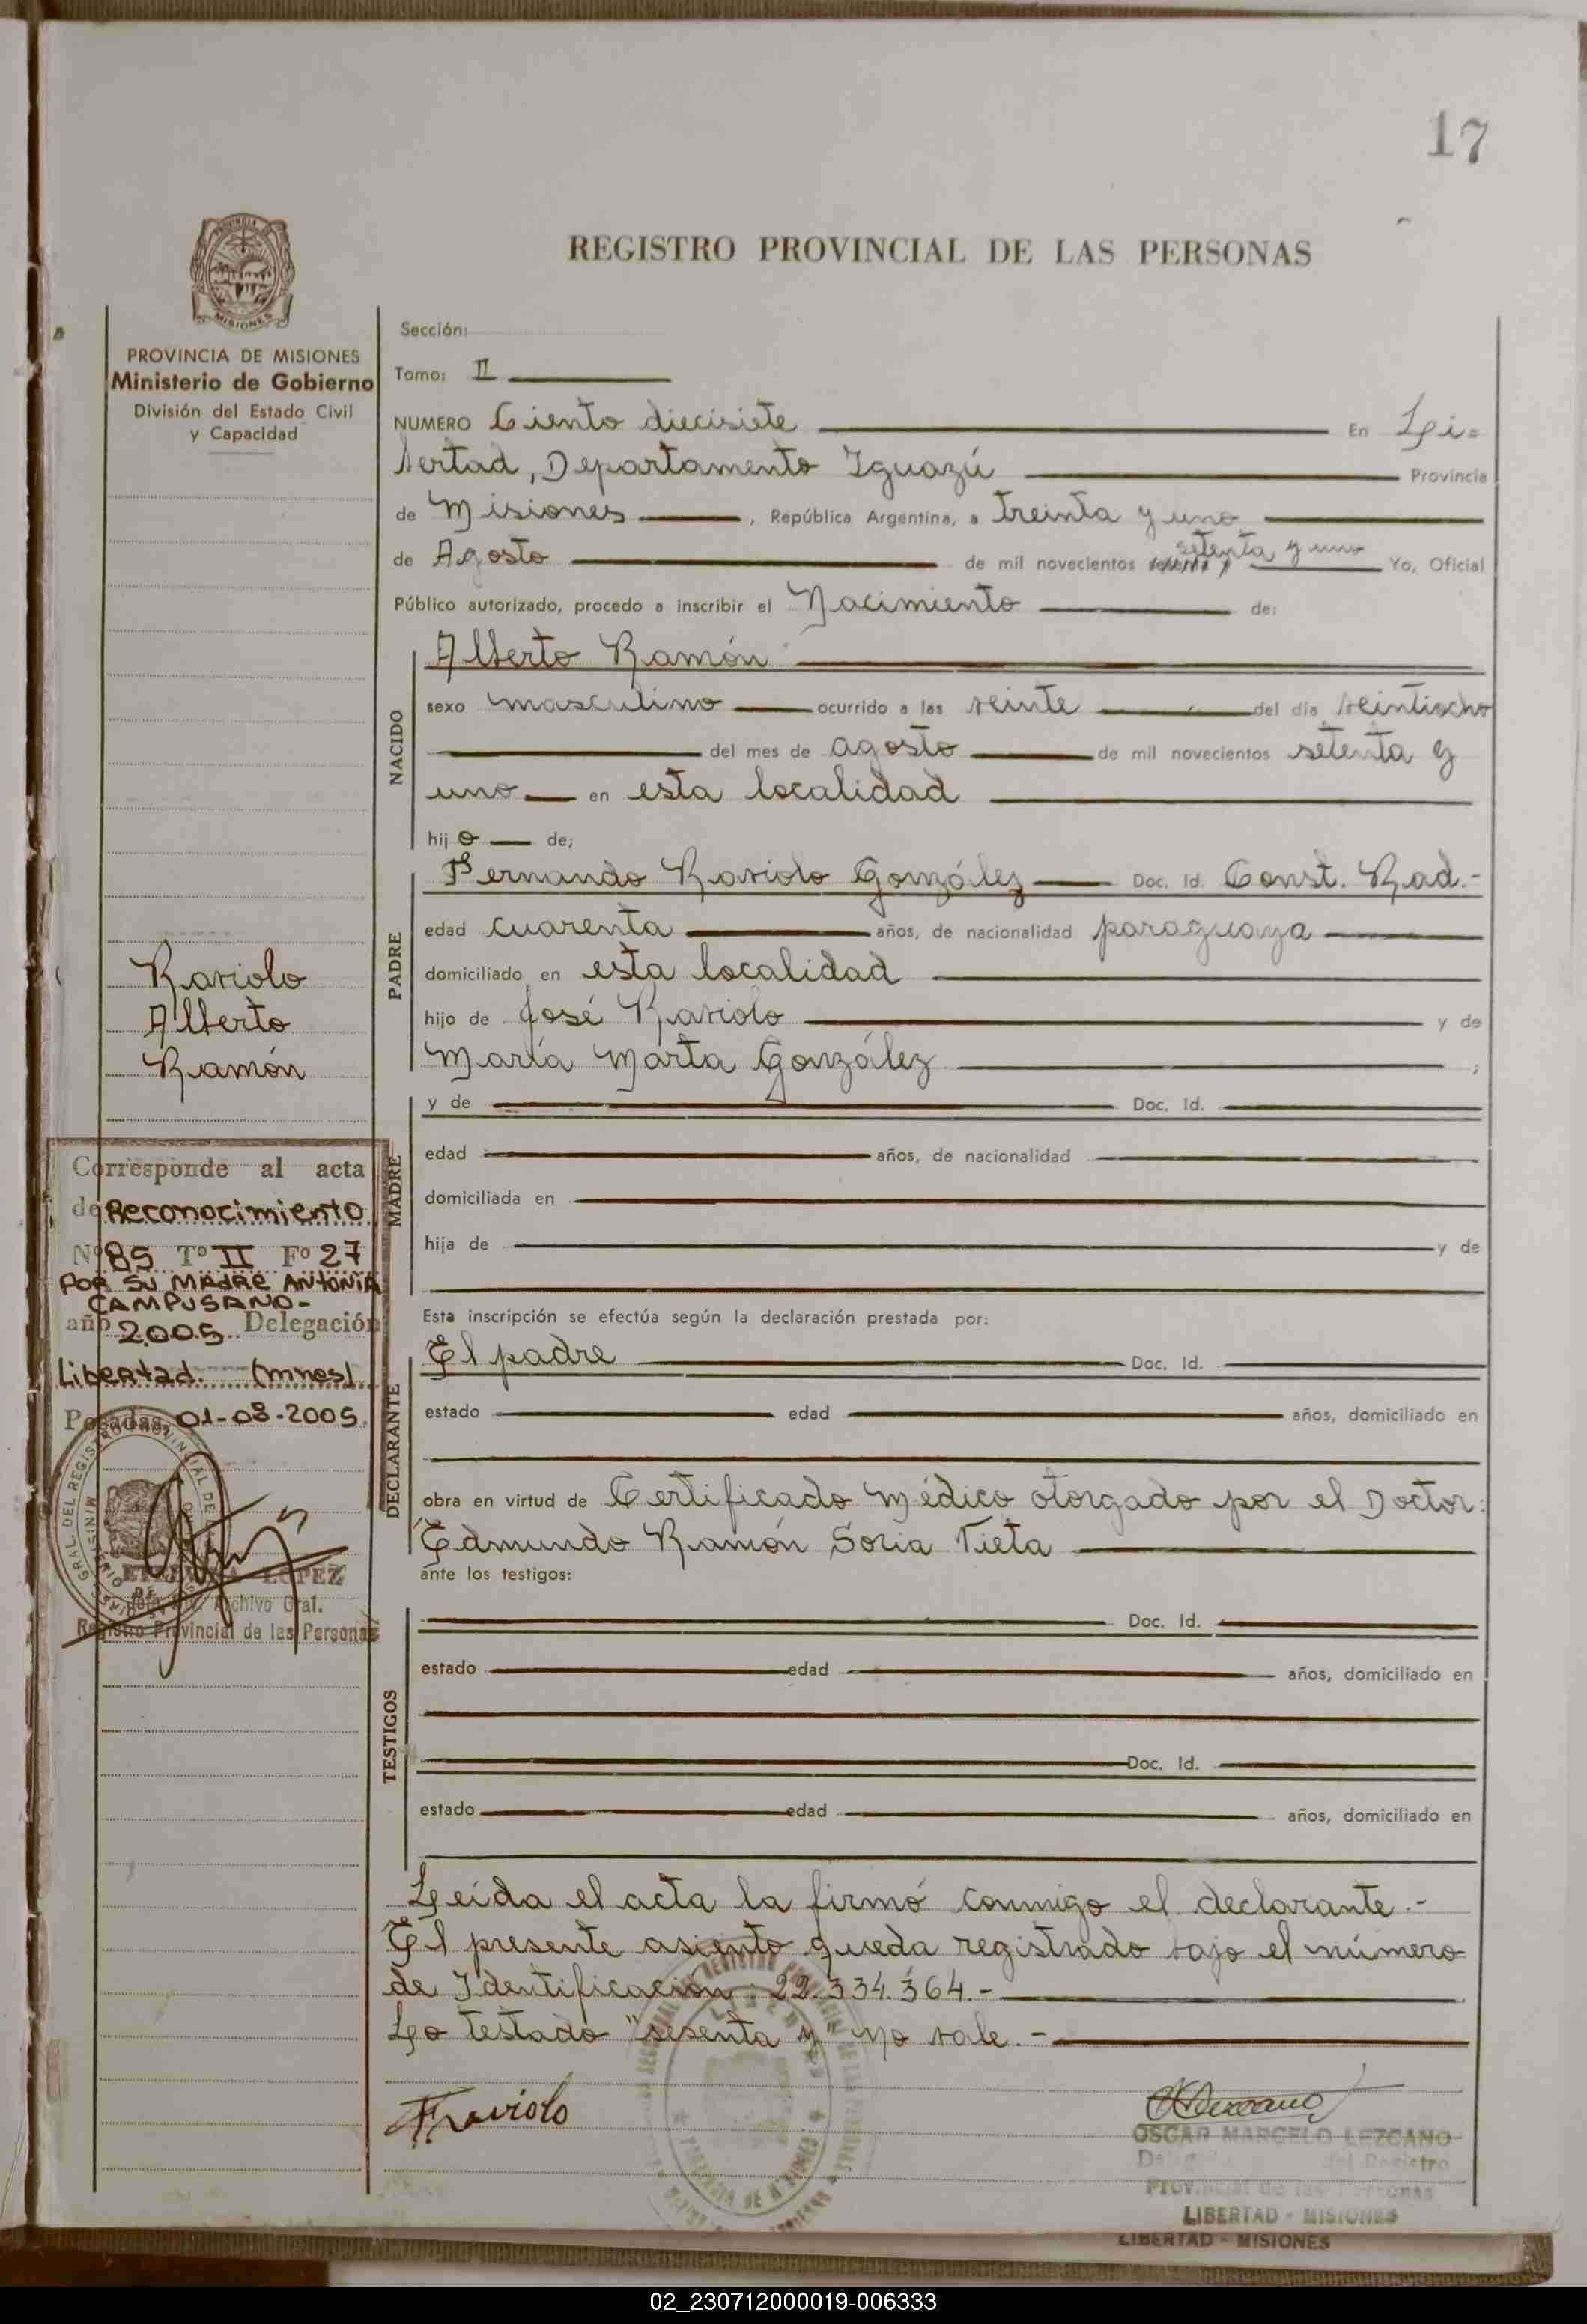 17
REGISTRO PROVINCIAL DE LAS PERSONAS
PROVINCIA DE MISIONES
Ministerio de Gobierno
División del Estado Civil
y Capacidad
Sección:
Tomo: II
NUMERO Ciento diecisiete En Li=
bertad, Departamento Iguazú Provincia
de Misiones, República Argentina, a treinta y uno
de Agosto de mil novecientos setenta y uno Yo, Oficial
Público autorizado, procedo a inscribir el Nacimiento de:
NACIDO
Alberto Ramón
sexo masculino ocurrido a las veinte del día veintiocho
del mes de agosto de mil novecientos setenta y
uno en esta localidad
hijo de;
PADRE
Fernando Raviolo González Doc. Id. Const. Rad.-
edad cuarenta años, de nacionalidad paraguaya
domiciliado en esta localidad
hijo de José Raviolo y de
María Marta González ;
MADRE
y de Doc. Id.
edad años, de nacionalidad
domiciliada en
hija de y de
Esta inscripción se efectúa según la declaración prestada por:
DECLARANTE
El padre Doc. Id.
estado edad años, domiciliado en
obra en virtud de Certificado Médico otorgado por el Doctor:
Edmundo Ramón Soria Vieta
ante los testigos:
TESTIGOS
Doc. Id.
estado edad años, domiciliado en
Doc. Id.
estado edad años, domiciliado en
Leída el acta la firmó conmigo el declarante.-
El presente asiento queda registrado bajo el número
de Identificación: 22.334.364.-
Lo testado "sesenta y" no vale.-
FRaviolo
OSCAR MARCELO LEZCANO
del Registro
Provincial de las Personas
LIBERTAD - MISIONES
LIBERTAD - MISIONES
Raviolo
Alberto
Ramón
Corresponde al acta
de Reconocimiento
Nº 85 Tº II Fº 27
POR SU MADRE ANTONIA
CAMPUSANO-
año 2005 Delegación
Libertad (mnes)
Posadas, 01-08-2005.
LOPEZ
Archivo Gral.
Registro Provincial de las Personas
02_230712000019-006333